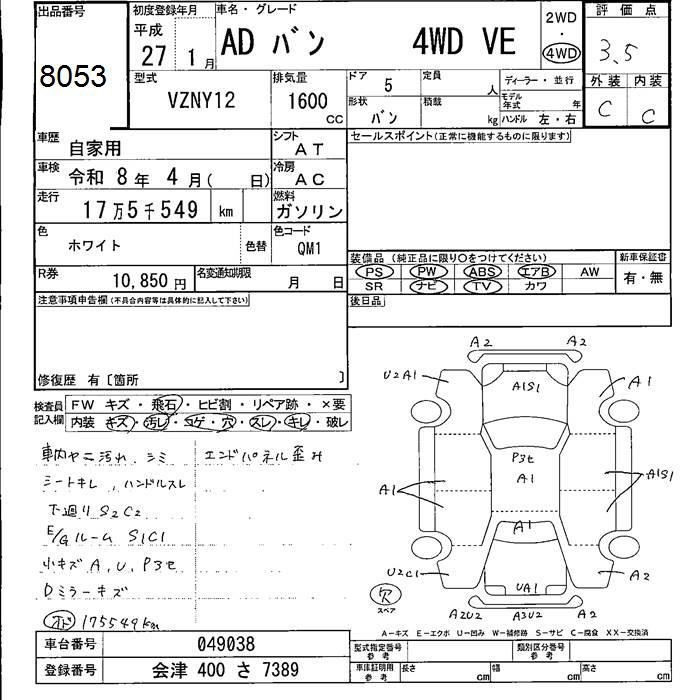 出品番号
8053
初度登録年月
平成
27 1月
車名・グレード
AD バン 4WD VE
2WD
・
4WD
評価点
3.5
外装 内装
C C
型式
VZNY12
排気量
1600
CC
ドア 5
形状 バン
定員 人
積載 kg
ディーラー・並行
モデル年式 年
ハンドル 左・右
車歴 自家用
シフト AT
セールスポイント(正常に機能するものに限ります)
車検 令和 8年 4月( 日)
冷房 AC
走行 17万5千549 km
燃料 ガソリン
色 ホワイト 色替
色コード QM1
装備品 (純正品に限り○をつけてください)
PS PW ABS エアB AW
SR ナビ TV カワ
新車保証書
有・無
R券 10,850円
名変通知期限 月 日
後日品
注意事項申告欄(不具合内容等は具体的に記入して下さい)
修復歴 有〔箇所 〕
検査員記入欄
FW キズ・飛石・ヒビ割・リペア跡・×要
内装 キズ・汚レ・コゲ・穴・スレ・キレ・破レ
車内ヤニ汚れ、シミ エンドパネル歪み
シートキレ、ハンドルスレ
下廻りS2C2
E/GルームS1C1
小キズA,U,P3セ
Dミラーキズ
オド 175549km
A2 A2
U2A1 A1S1 A1
P3セ
A1 A1 A1S1
A1
U2C1 UA1 A2
A2U2 A3U2 A2
欠
スペア
A-キズ E-エクボ U-凹み W-補修跡 S-サビ C-腐食 XX-交換済
車台番号 049038
登録番号 会津 400 さ 7389
型式指定番号
参考
類別区分番号
参考
車庫証明用
参考
長さ cm 幅 cm 高さ cm